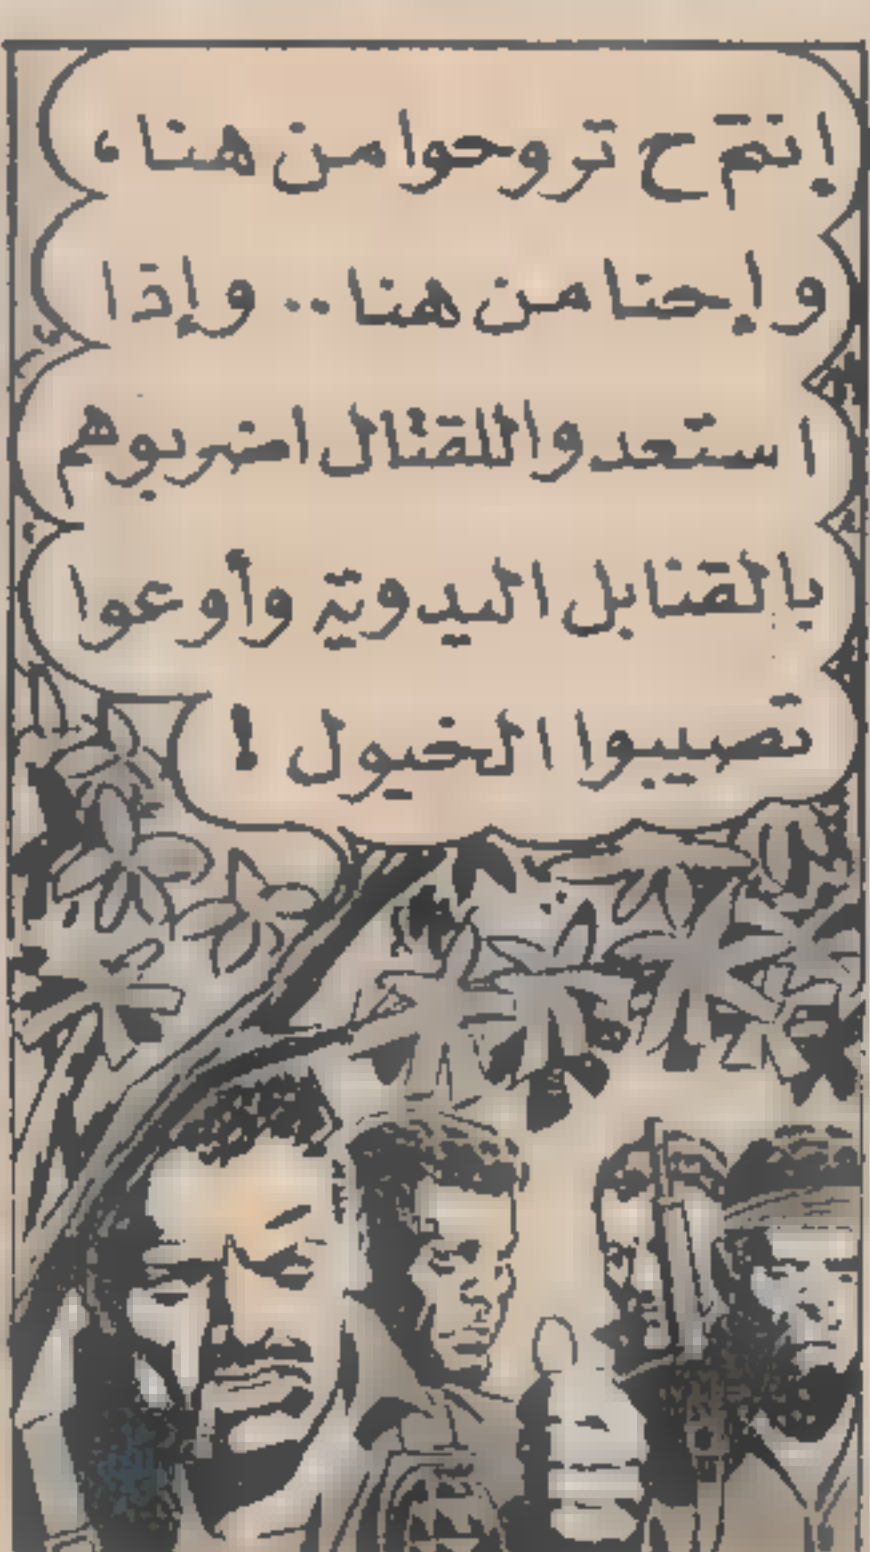 إنتم ح تروحوا من هنا،
وإحنا من هنا.. وإذا
استعدوا للقتال اضربوهم
بالقنابل اليدوية وأوعوا
تصيبوا الخيول!